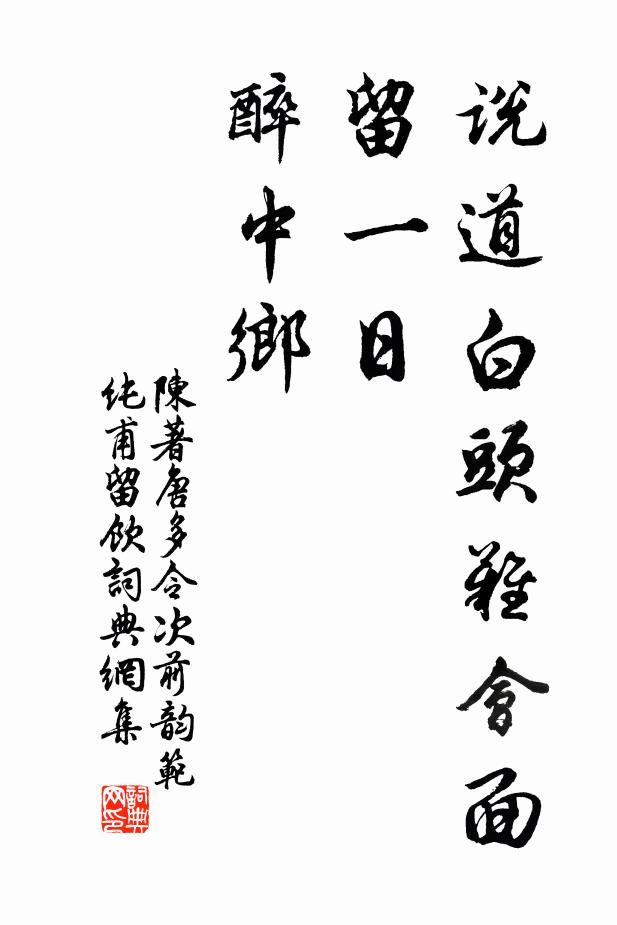 说道白頭難會面
留一日
醉中鄉
陳著唐多令次前韵範
純甫留飲詞典網集
詞典
网印